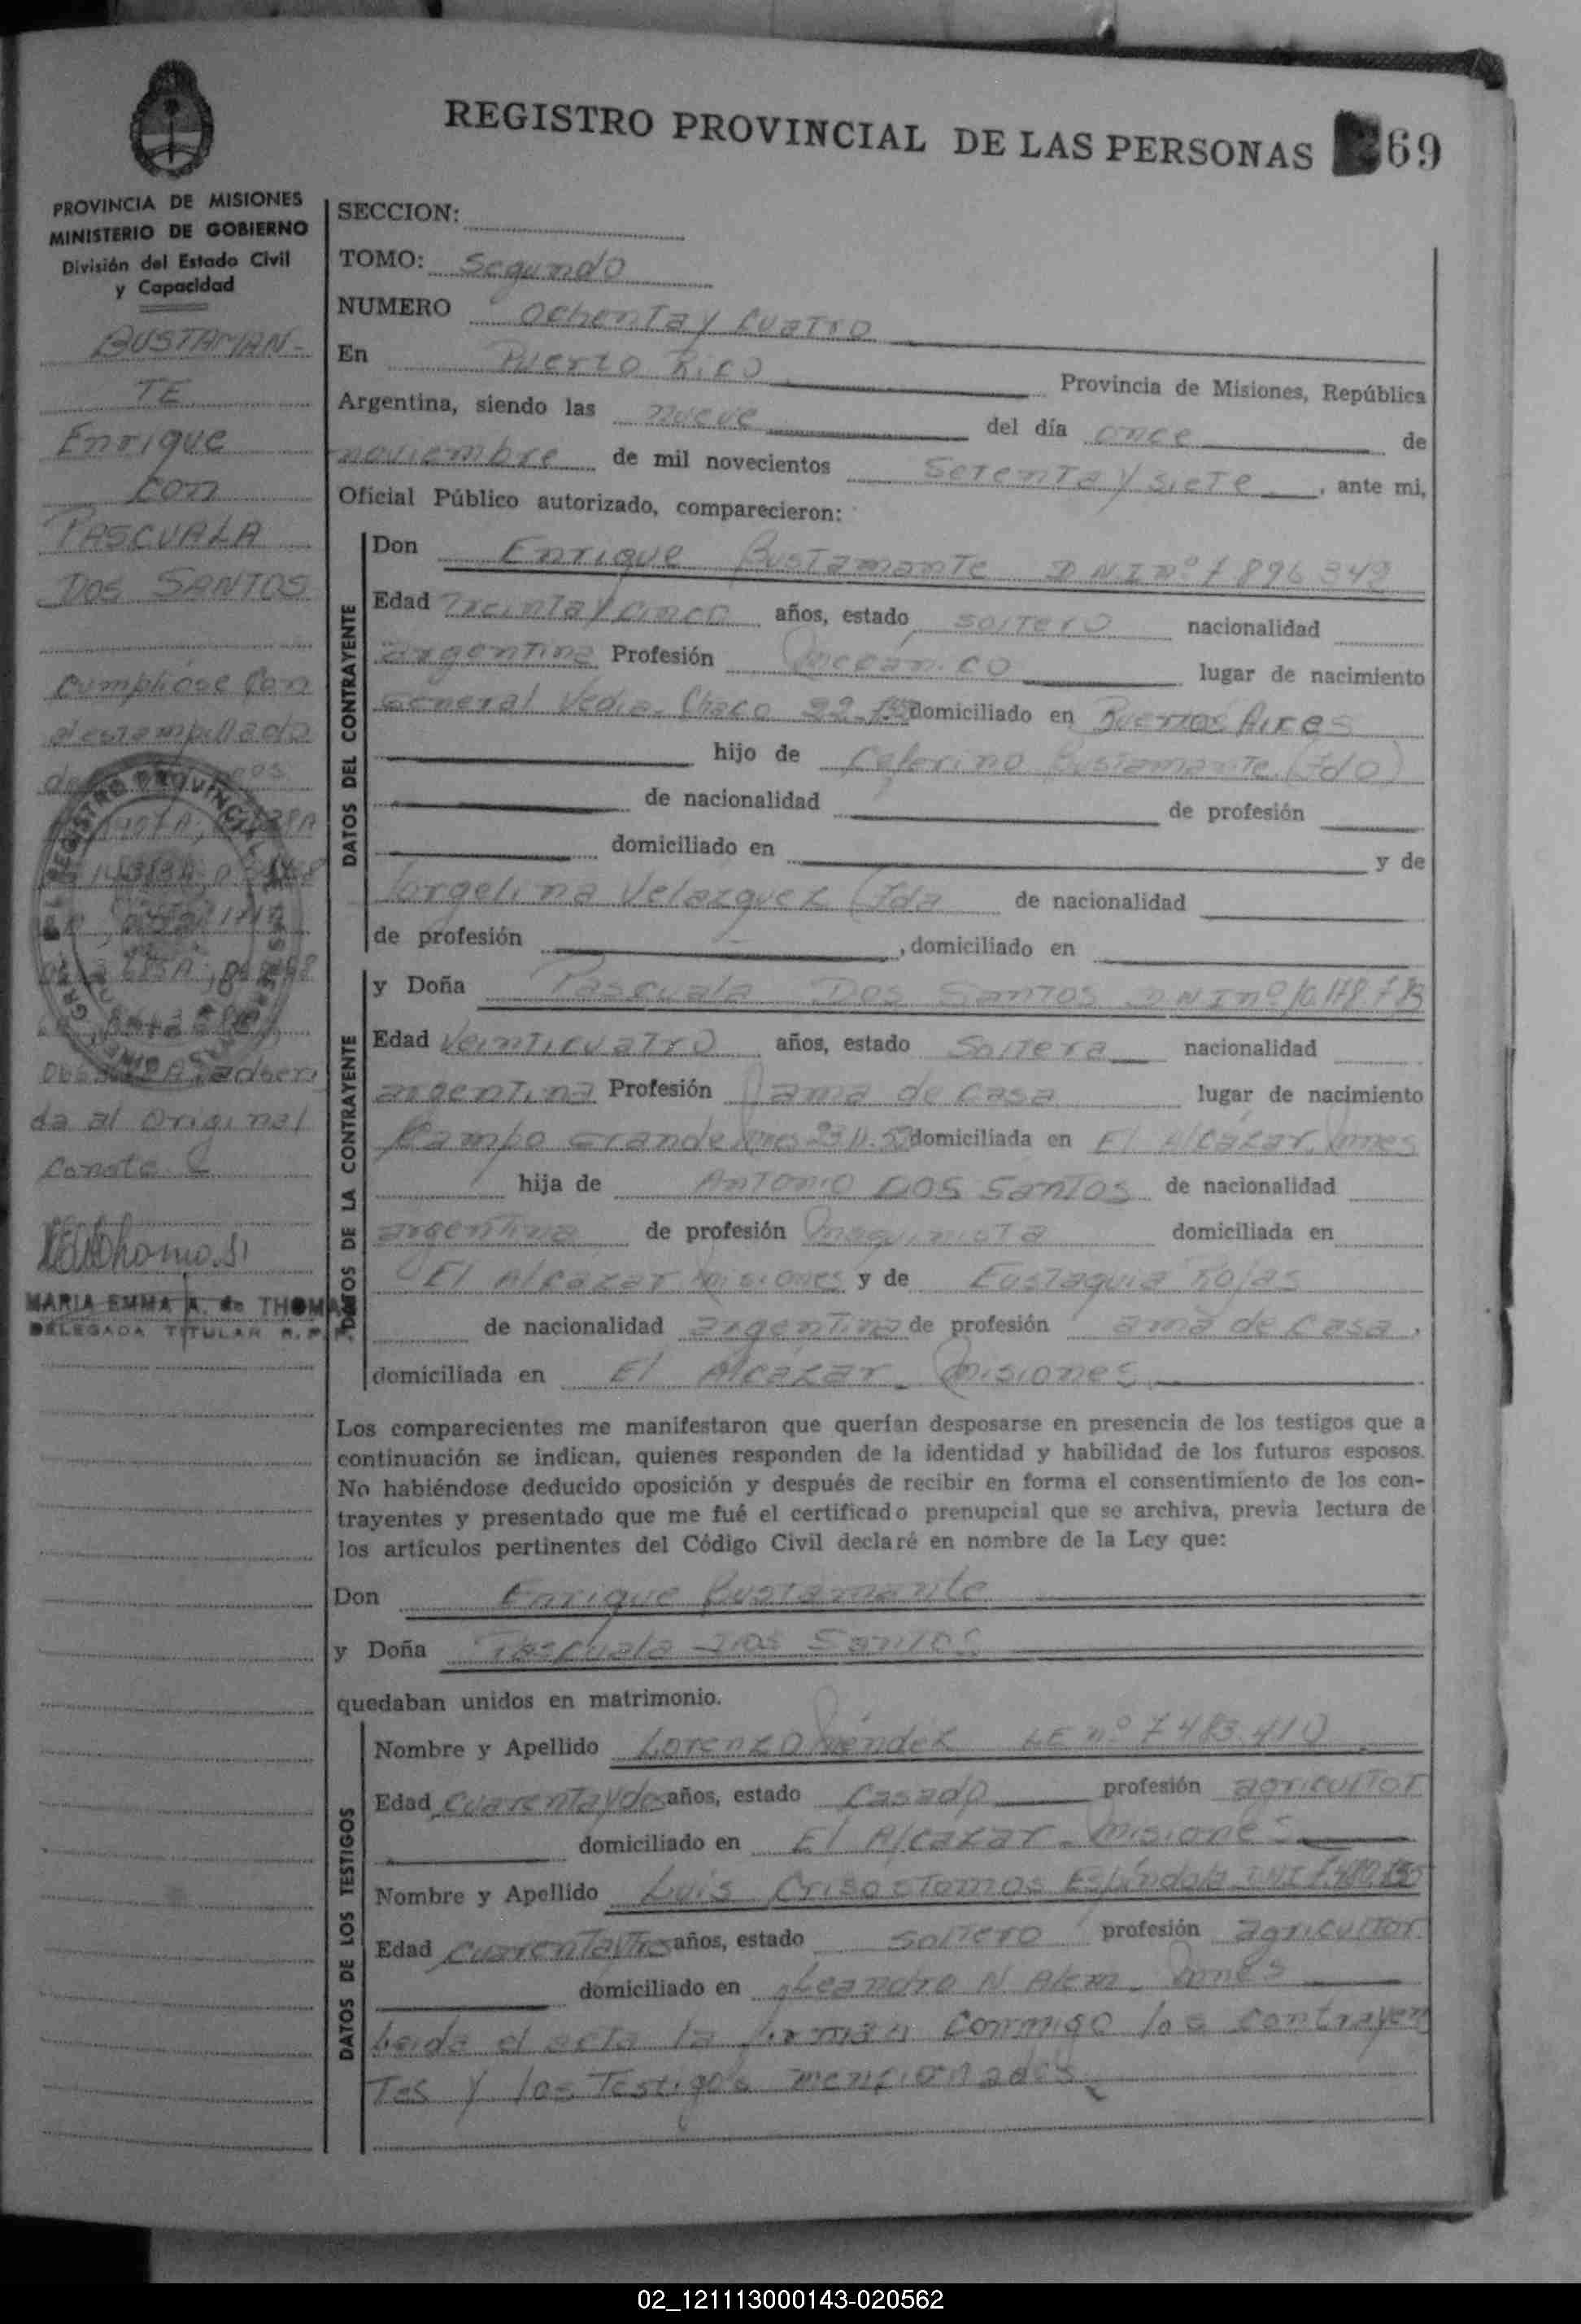 REGISTRO PROVINCIAL DE LAS PERSONAS 69
PROVINCIA DE MISIONES
MINISTERIO DE GOBIERNO
División del Estado Civil
y Capacidad
BUSTAMAN-
TE
Enrique
con
PASCUALA
DOS SANTOS
cumplióse con
el estampillado
da al original
Conste
MARIA EMMA A. de THOMAS
DELEGADA TITULAR R. P. P.
SECCION:
TOMO: Segundo
NUMERO Ochenta y cuatro
En Puerto Rico Provincia de Misiones, República
Argentina, siendo las nueve del día once de
noviembre de mil novecientos setenta y siete, ante mi,
Oficial Público autorizado, comparecieron:
DATOS DEL CONTRAYENTE
Don Enrique Bustamante DNI nº 7896342
Edad Treinta y cinco años, estado soltero nacionalidad
argentina Profesión mecánico lugar de nacimiento
General Vedia-Chaco domiciliado en Buenos Aires
hijo de Ceferino Bustamante (fdo)
de nacionalidad de profesión
domiciliado en y de
Jorgelina Velazquez (fda de nacionalidad
de profesión , domiciliado en
DATOS DE LA CONTRAYENTE
y Doña Pascuala Dos Santos DNI nº 10.178.783
Edad Veinticuatro años, estado Soltera nacionalidad
argentina Profesión ama de casa lugar de nacimiento
Campo Grande Mnes 23.11.53 domiciliada en El Alcázar, Mnes
hija de Antonio Dos Santos de nacionalidad
argentina de profesión maquinista domiciliada en
El Alcázar Misiones y de Eustaquia Rojas
de nacionalidad argentina de profesión ama de casa,
domiciliada en El Alcázar - Misiones
Los comparecientes me manifestaron que querían desposarse en presencia de los testigos que a
continuación se indican, quienes responden de la identidad y habilidad de los futuros esposos.
No habiéndose deducido oposición y después de recibir en forma el consentimiento de los con-
trayentes y presentado que me fué el certificado prenupcial que se archiva, previa lectura de
los artículos pertinentes del Código Civil declaré en nombre de la Ley que:
Don Enrique Bustamante
y Doña Pascuala Dos Santos
quedaban unidos en matrimonio.
DATOS DE LOS TESTIGOS
Nombre y Apellido Lorenzo Méndez LE nº 7483.410
Edad cuarenta y dos años, estado casado profesión agricultor
domiciliado en El Alcazar - Misiones
Nombre y Apellido Luis Crisostomos Espíndola DNI
Edad cuarenta y tres años, estado soltero profesión agricultor
domiciliado en Leandro N. Alem - Mnes
Leida el acta la firman conmigo los contrayen
tes y los testigos mencionados
02_121113000143-020562